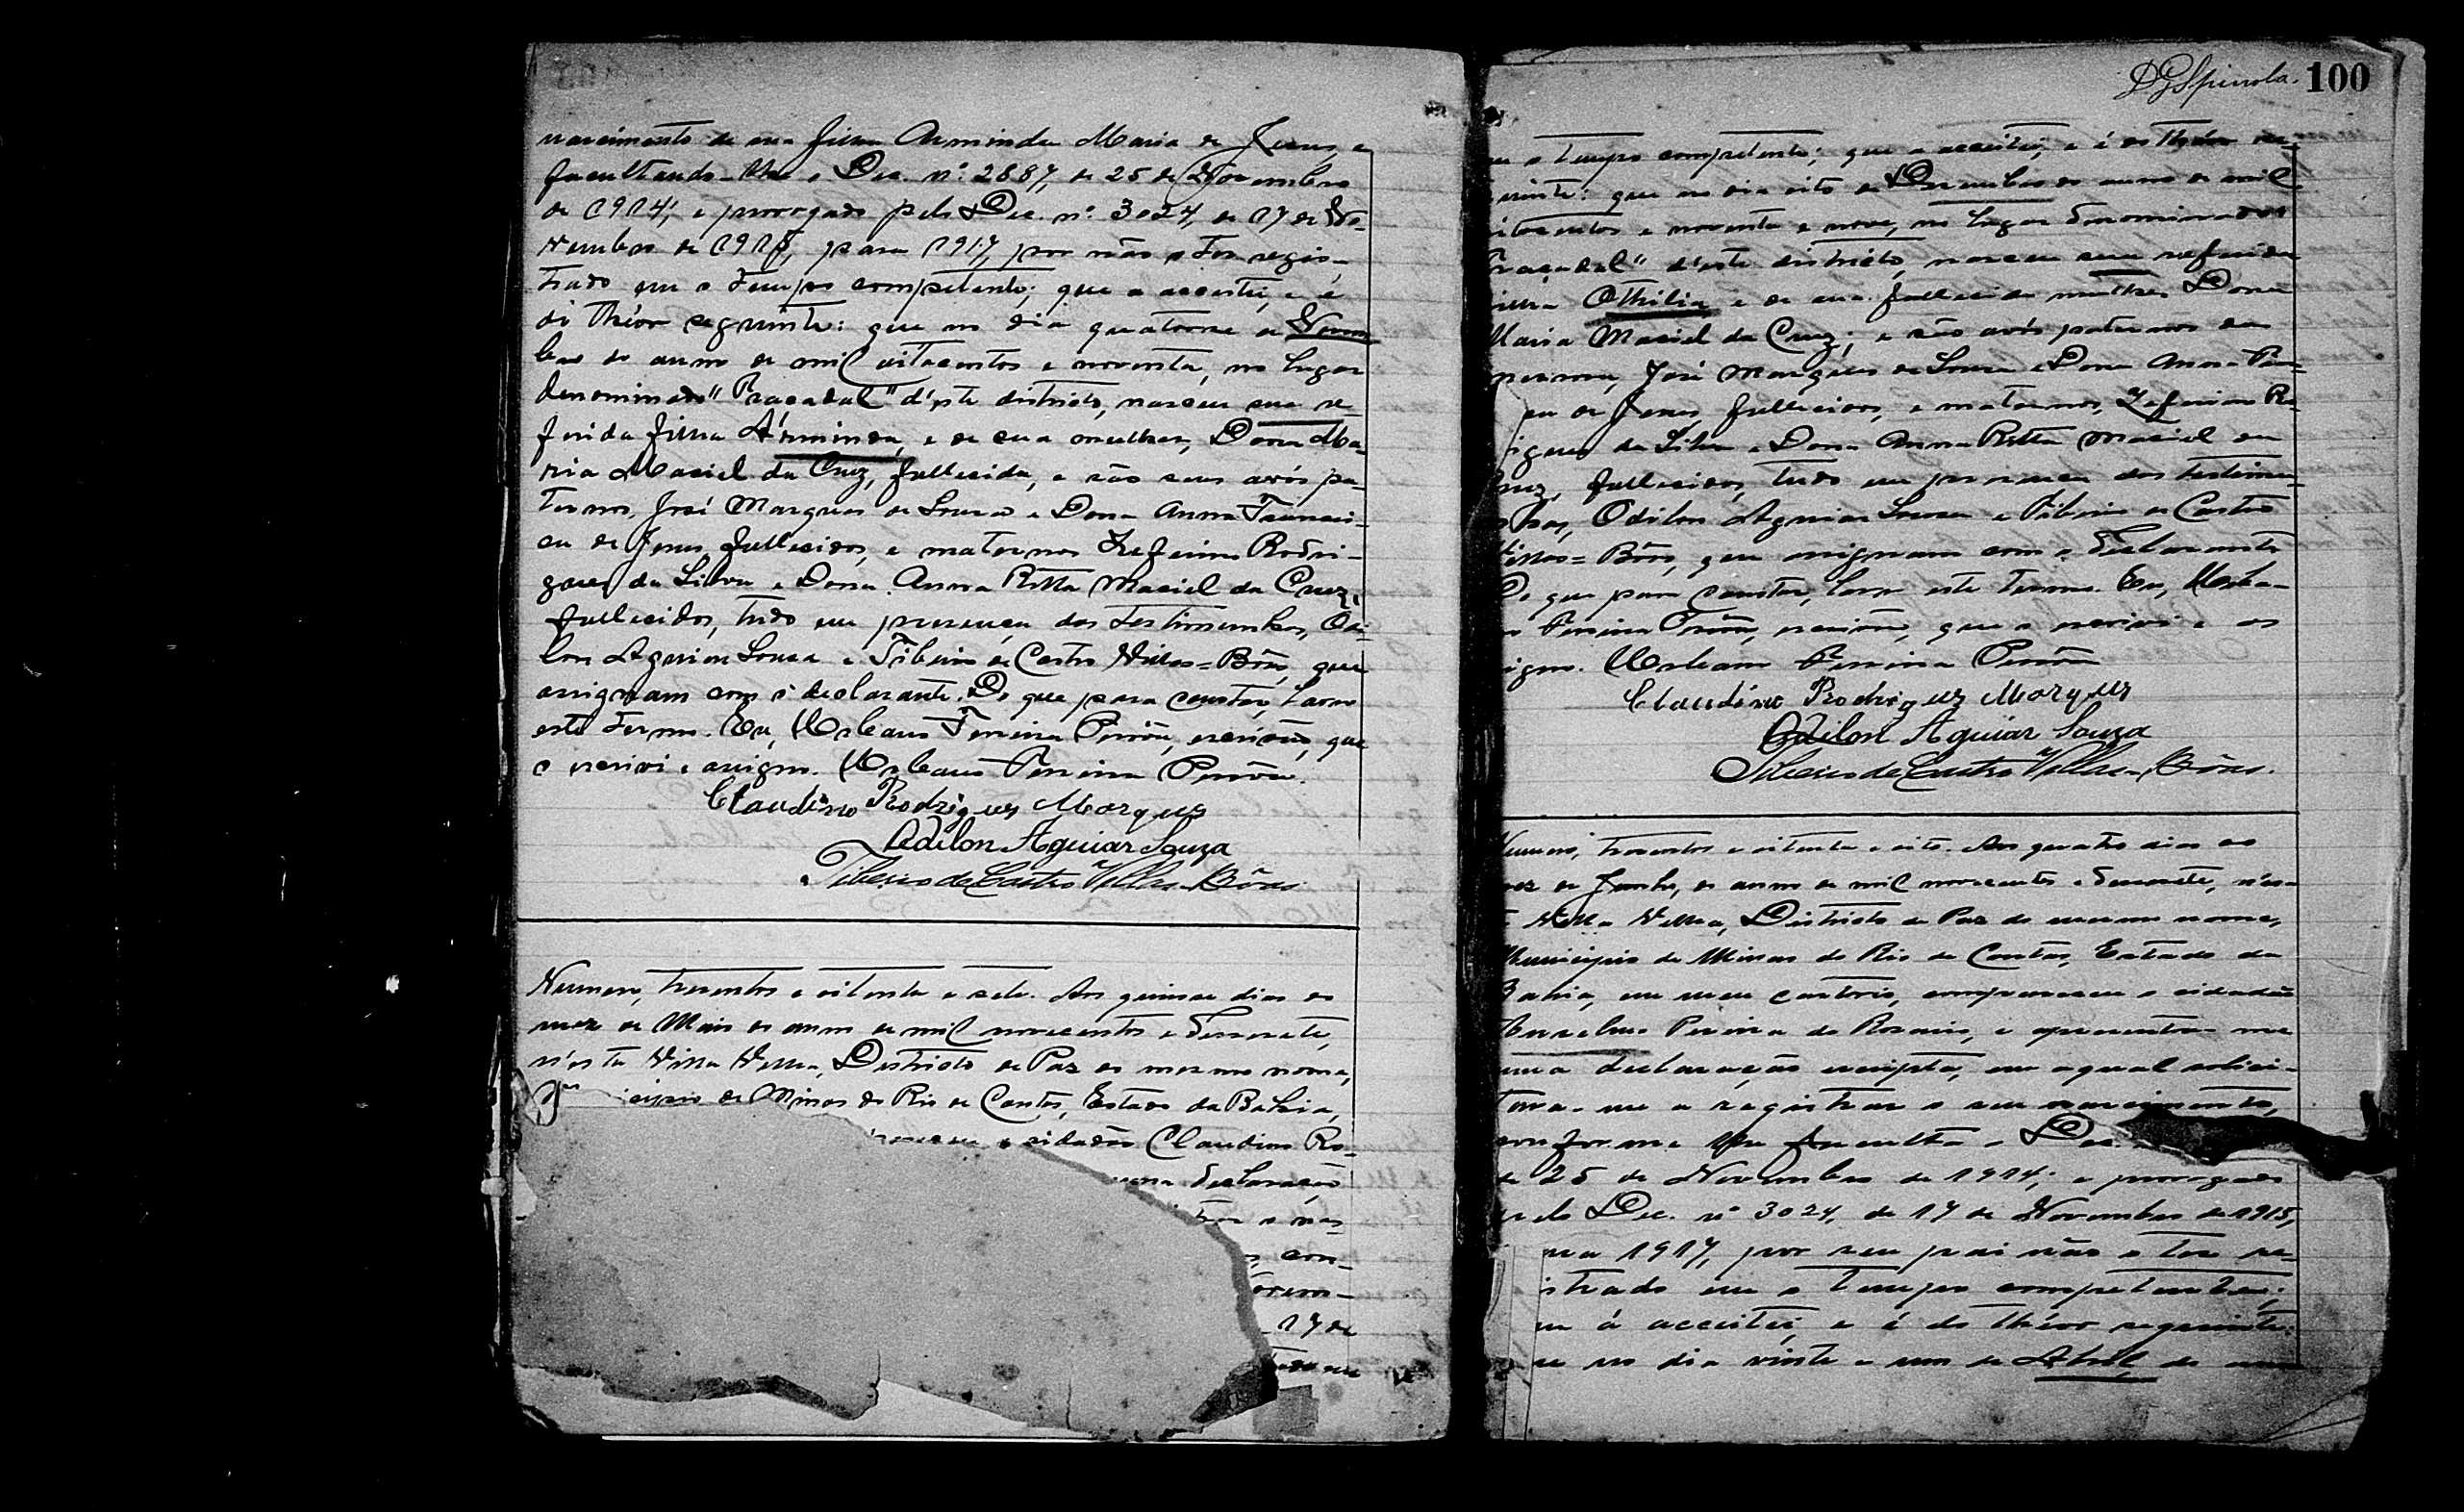 nascimento de sua filha Arminda Maria de Jesus, e
facultando-lhe o Dec. nº 2887, de 25 de Novembro
de 1914; e prorogado pelo Dec. nº 3024, de 17 de No-
vembro de 1915, para 1917, por não o ter regis-
trado em o tempo competente; que a acceitei, e é
do théor seguinte: que no dia quatorse de Novem-
bro do anno de mil oitocentos e noventa, no lugar
denominado "Pracadal" d'este districto, nasceu sua re-
ferida filha Arminda, e de sua mulher, Dona Ma-
ria Maciel da Cruz, fallecida, e são seus avós pa-
ternos, José Marques de Souza e Dona Anna Francis-
ca de Jesus, fallecidos, e maternos Zeferino Rodri-
gues da Silva e Dona Anna Ritta Maciel da Cruz,
fallecidos, tudo em presença das testimunhas, Odi-
lon Aguiar Souza e Tiberio de Castro Villas=Bôas, que
assignam com o declarante. Do que para constar, lavro
este termo. Eu, Urbano Ferreira, escrivão, que
o escrivi e assigno. Urbano Ferreira
Claudino Rodrigues Marques
Odilon Aguiar Souza
Tiberio de Castro Villas-Bôas.
Numero, tresentos e oitenta e sete. Aos quinse dias do
mez de Maio do anno de mil novecentos e desesete,
n'esta Villa Velha, Districto de Paz do mesmo nome,
icipio de Minas do Rio de Contas, Estado da Bahia,
o cidadão Claudino Ro-
uma declaração
trar o nas-
con-
17 de
100
em o tempo competente; que a acceitei, e é do théor se-
guinte: que no dia oito de Desembro do anno de mil
oitocentos e noventa e nove, no lugar denominado
"Pracadal" d'este districto, nasceu sua referida
filha Othilia, e de sua fallecida mulher Dona
Maria Maciel da Cruz; e são avós paternos da
mesma, José Marques de Souza e Dona Anna Fran-
ca de Jesus, fallecidos, e maternos, Zeferino Ro-
rigues da Silva e Dona Anna Ritta Maciel da
Cruz, fallecidos, tudo em presença das testimu-
nhas, Odilon Aguiar Souza e Tiberio de Castro
Villas=Bôas, que assignam com o declarante
Do que para constar, lavro este termo. Eu, Urba-
no Ferreira, escrivão, que o escrivi e as
signo. Urbano Ferreira
Claudino Rodrigues Marques
Odilon Aguiar Souza
Tiberio de Castro Villas-Bôas.
Numero, tresentos e oitenta e oito. Aos quatro dias do
mez de Junho, do anno de mil novecentos e desesete, n'es-
ta Villa Velha, Districto de Paz do mesmo nome,
Municipio de Minas do Rio de Contas, Estado da
Bahia, em meu cartorio, compareceu o cidadão
Anselmo Pereira do Rosario, e apresentou-me
uma declaração escripta, em a qual solici-
tava-me a registrar o seu nascimento,
conforme lhe faculta o Dec.
de 25 de Novembro de 1914; e prorogado
pelo Dec. nº 3024, de 17 de Novembro de 1915,
para 1917, por seu pai não o ter re-
istrado em o tempo competente;
que á acceitei, e é do théor seguinte:
que no dia vinte e um de Abril do anno